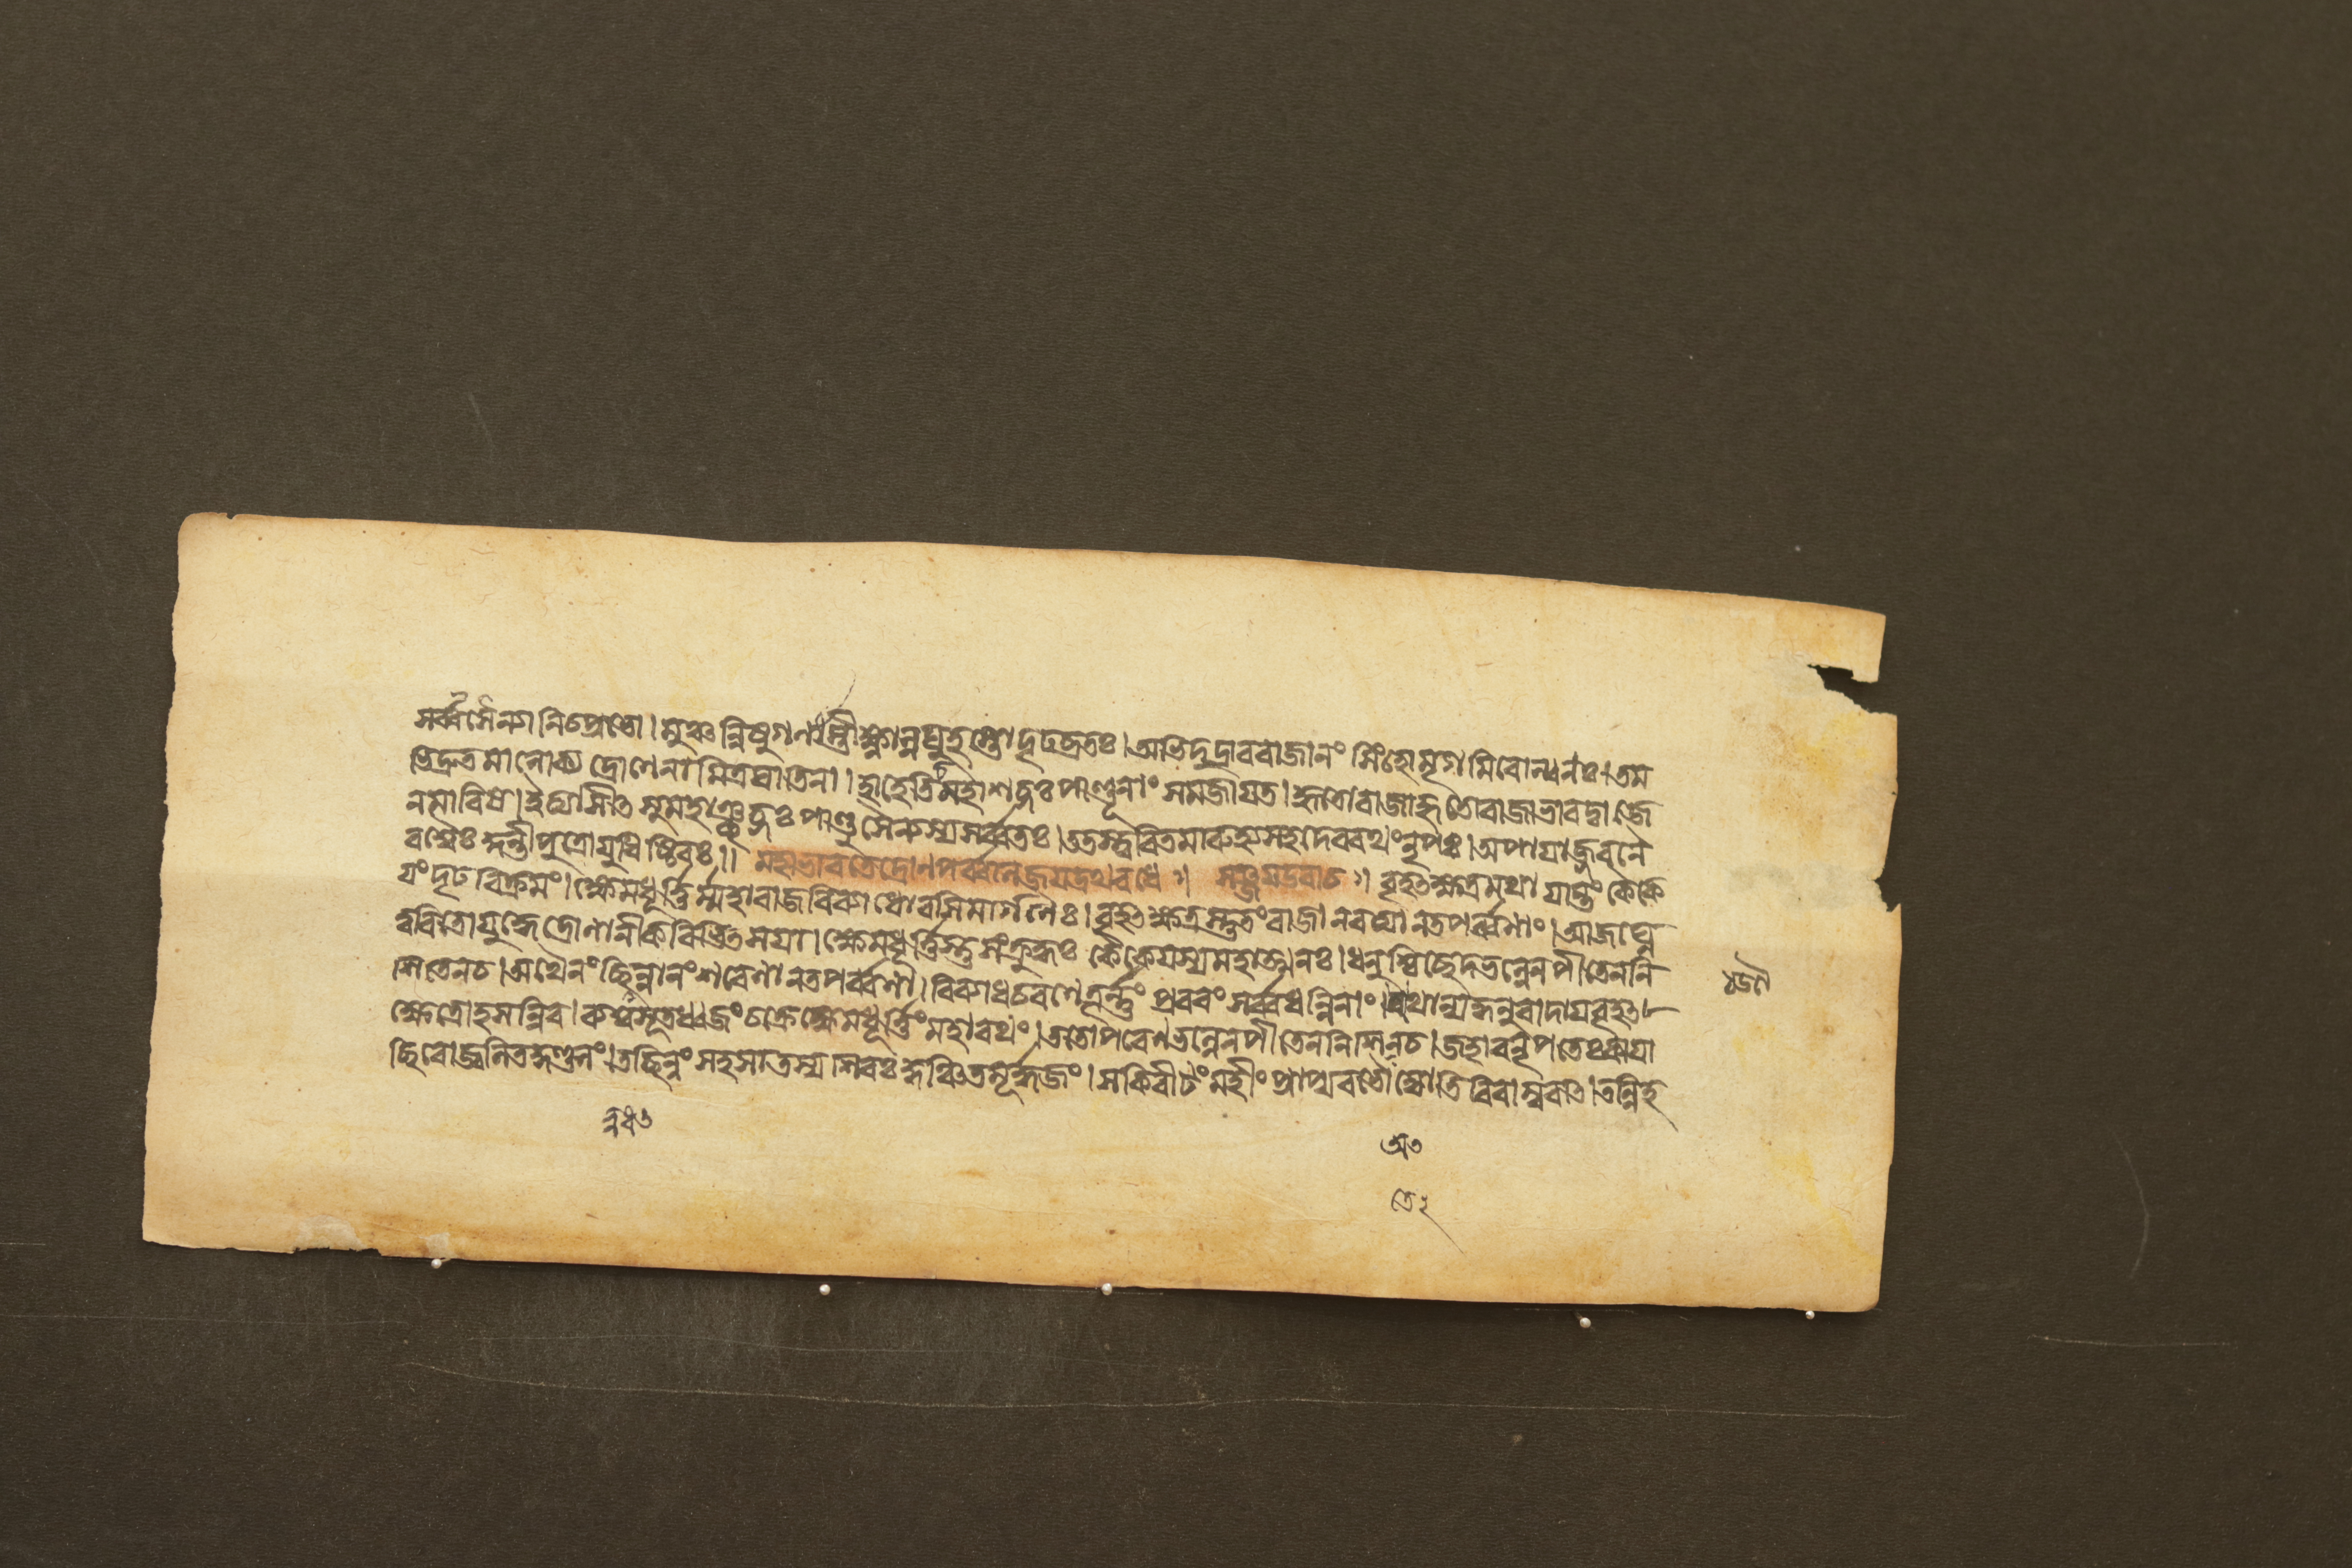 সর্ব্বসৈন্যানিপ্রেক্ষতো। মুঞ্চন্নিষুগণাংস্তীক্ষ্ণান্লঘুহস্তোদৃঢব্রতঃ। অভিদুদ্রাবরাজানং সিংহোমৃগমিবোল্বণঃ। তম
ভিদ্রুতমালোক্য দ্রোণেনামিত্রঘাতিনা। হাহেতিসুমহাশব্দঃ পাণ্ডূনাং সমজাযত। হৃতোরাজাহৃতোরাজাভারদ্বাজে
নমারিষ। ইত্যাসীৎ সুমহাঞ্ছব্দঃ পাণ্ডুসৈন্যস্যসর্ব্বতঃ। ততস্ত্বরিতমারুহ্যসহদেবরথংনৃপঃ। অপাযাজ্জবনৈ
রশ্বৈঃ কুন্তীপুত্রোযুধিষ্ঠিরঃ॥ মহাভারতেদ্রোণপর্ব্বনিজযদ্রথবধে॥ সঞ্জযউবাচ॥ বৃহৎক্ষত্রমথাযান্তং কৈকে
যংদৃঢবিক্রমং। ক্ষেমধূর্ত্তির্ম্মহারাজবিব্যাধোরসিমার্গণৈঃ। বৃহৎক্ষত্রস্তুতংরাজানবত্যানতপর্ব্বণাং। আজঘ্নে
ত্বরিতোযুদ্ধেদ্রোণানীকবিভিৎসযা। ক্ষেমধূর্ত্তিস্তুসংক্রুদ্ধঃ কৈকেযস্যমহাত্মনঃ। ধনুশ্চিচ্ছেদভল্লেনপীতেননি
শিতেনচ। অথৈনং ছিন্নধন্বানংশরেণানতপর্ব্বণা। বিব্যাধচরণেতূর্ন্নং প্রবরং সর্ব্বধন্বিনাং। অথান্যদ্ধনুরাদাযবৃহৎ
ক্ষত্রোহসন্নিব। ব্যশ্বসূতধ্বজং চক্রেক্ষেমধূর্ত্তিং মহারথং। ততোপরেণভল্লেনপীতেননিশিতেনচ। জহারনৃপতেঃকাযা
চ্ছিরোজ্বলিতকুণ্ডলং। তচ্ছিন্নং সহসাতস্য শিরঃ কুঞ্চিতমূর্দ্ধজং। সকিরীটং মহীং প্রাপ্যবভৌজ্যোতিরিবাম্বরাৎ। তন্নিহ